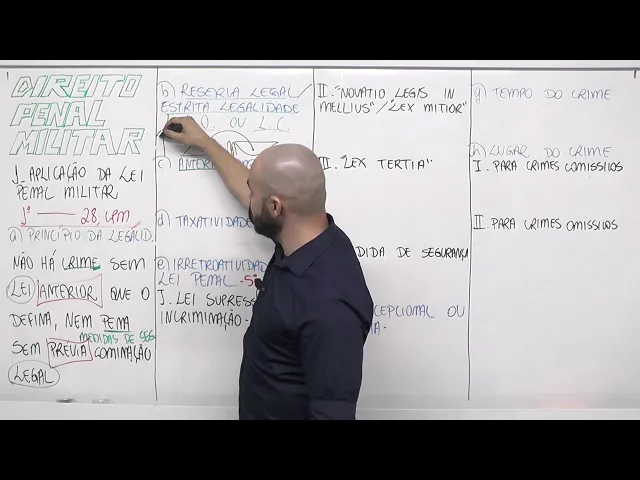 DIREITO
PENAL
MILITAR
1. APLICAÇÃO DA LEI
PENAL MILITAR
1º — 28, CPM
a) PRINCÍPIO DA LEGALID.
NÃO HÁ CRIME SEM
LEI ANTERIOR QUE O
DEFINA, NEM PENA
MEDIDAS DE SEG
SEM PRÉVIA COMINAÇÃO
LEGAL
b) RESERVA LEGAL/
ESTRITA LEGALIDADE
O. OU L.C.
c)
d) TAXATIVIDADE
e) IRRETROATIVIDADE
LEI PENAL - 5º
I. LEI SUPRESS
INCRIMINAÇÃO -
II. "NOVATIO LEGIS IN
MELLIUS"/"LEX MITIOR"
III. "LEX TERTIA"
DIDA DE SEGURANÇA
EPCIONAL OU
g) TEMPO DO CRIME
h) LUGAR DO CRIME
I. PARA CRIMES COMISSIVOS
II. PARA CRIMES OMISSIVOS